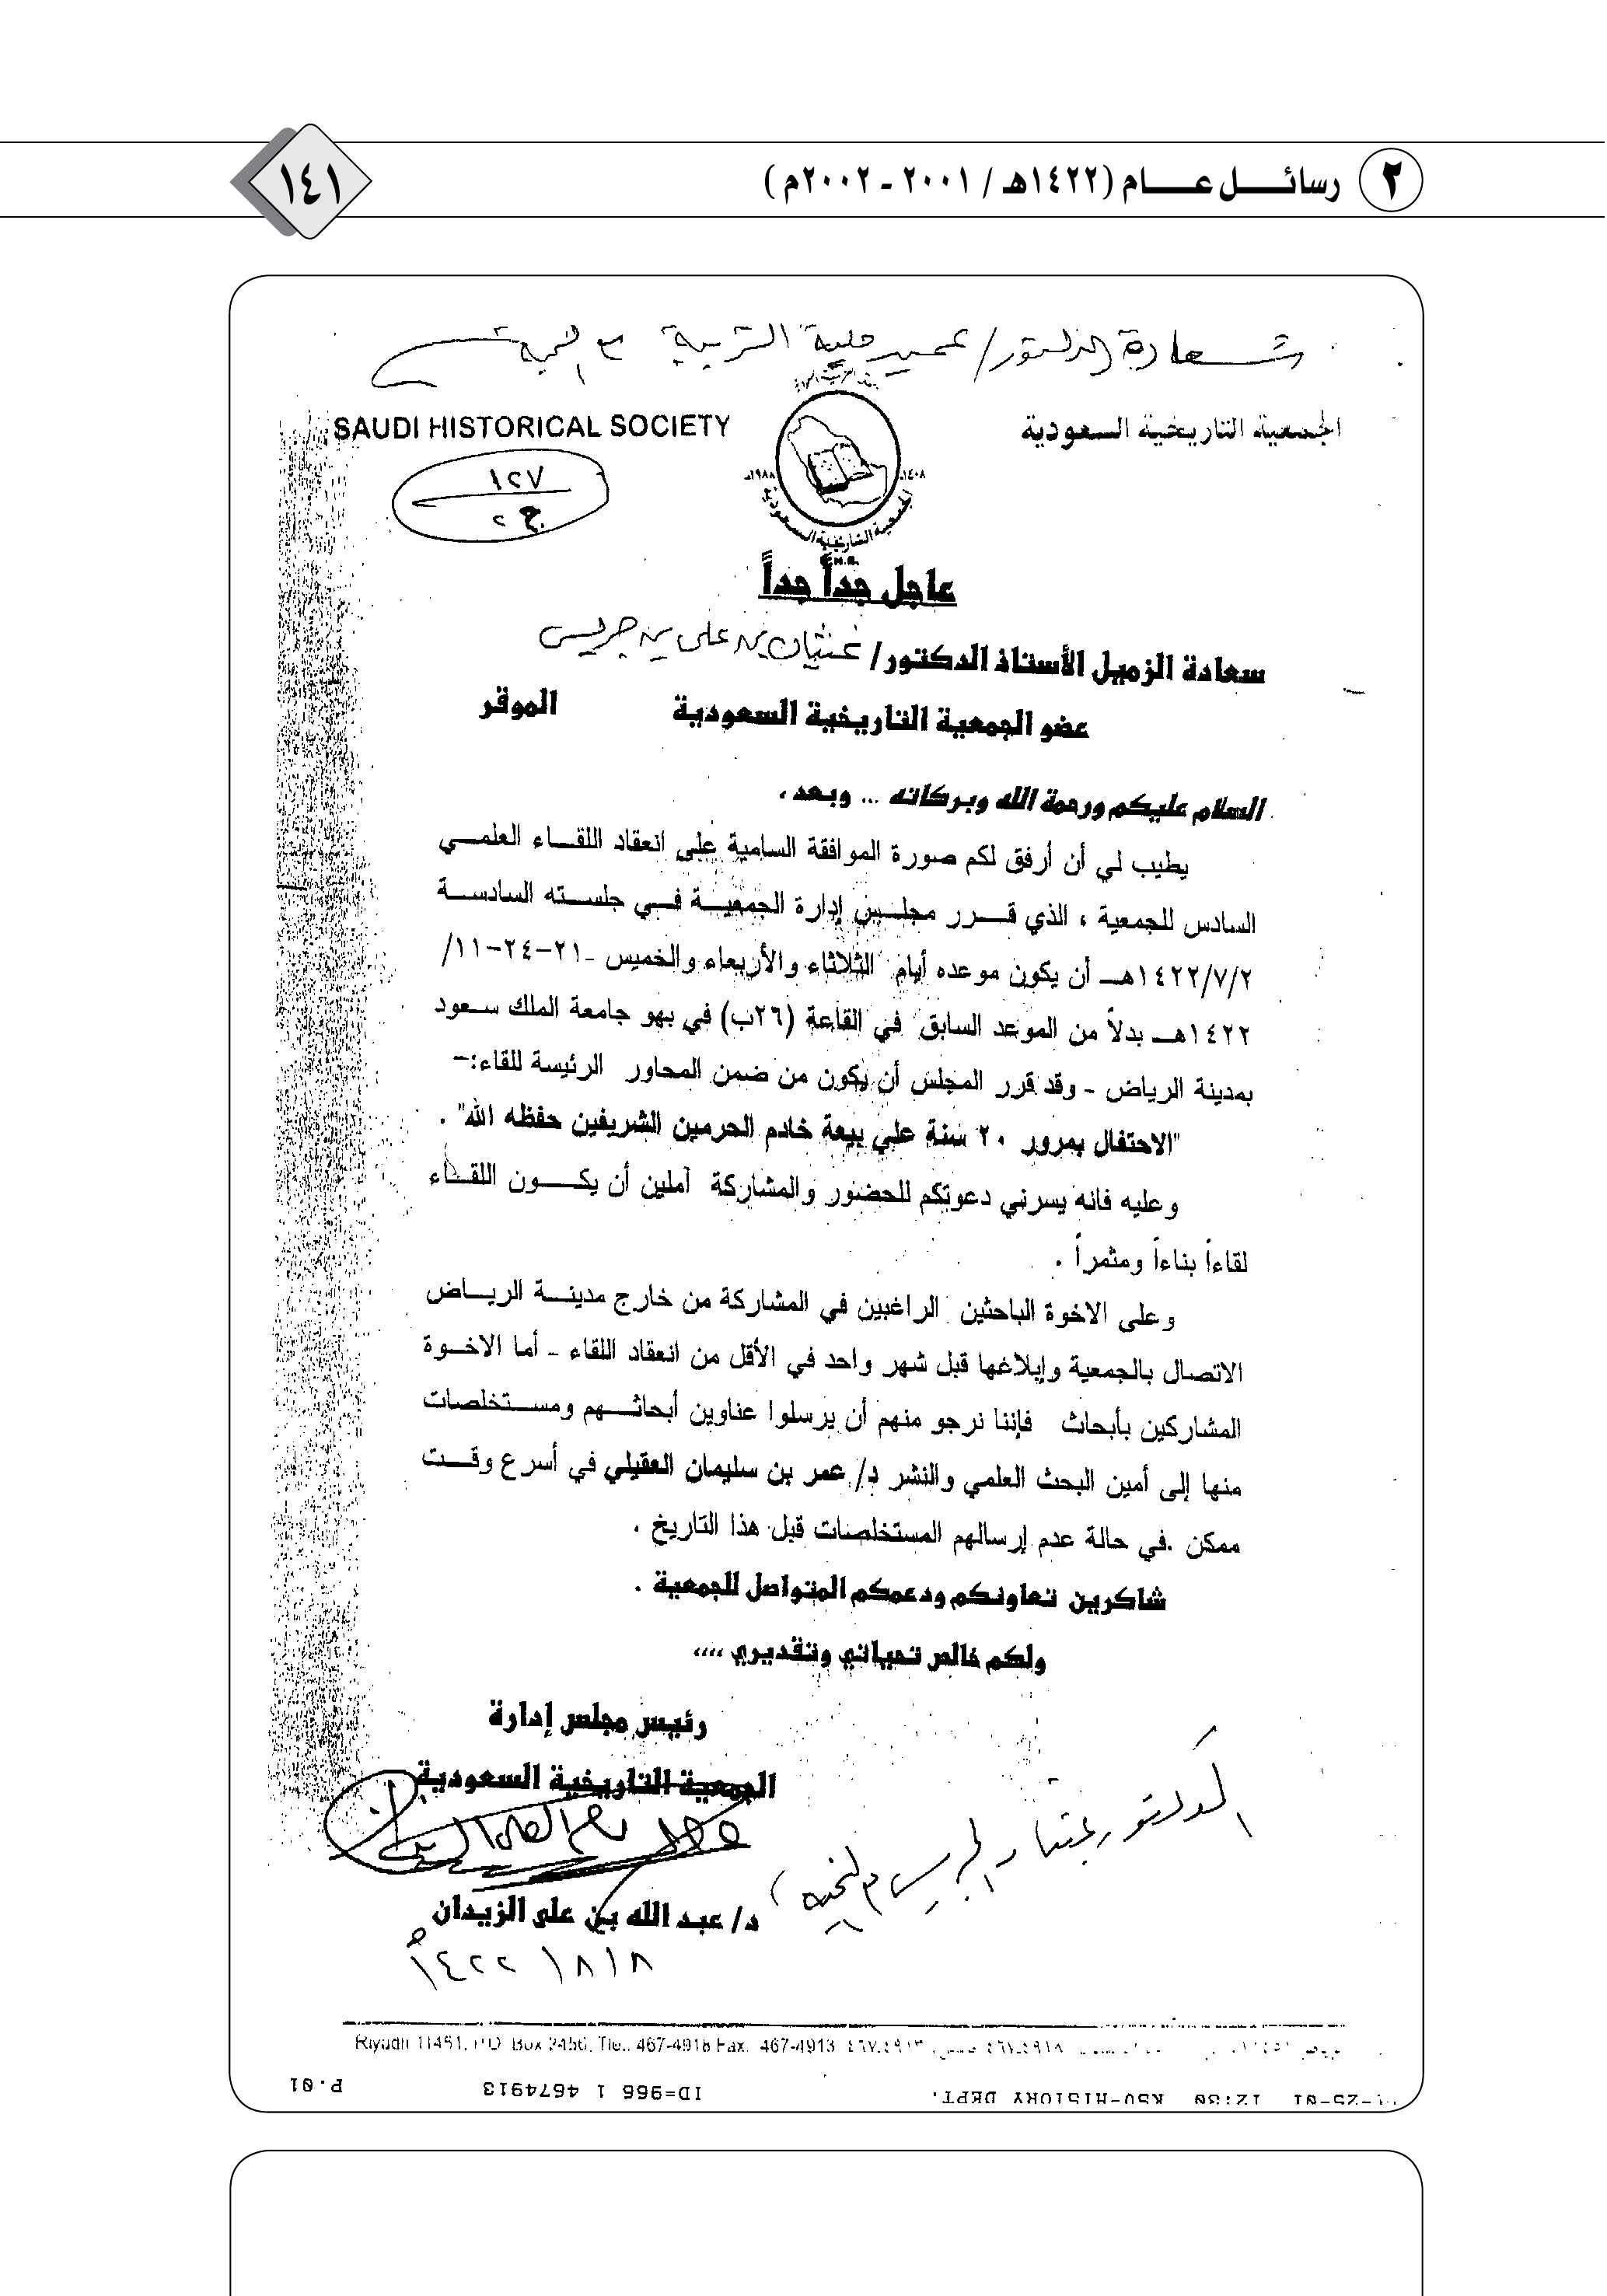 ٢ رسائــــل عــــام (١٤٢٢هـ / ٢٠٠١ ـ ٢٠٠٢م)
١٤١
سعادة الدكتور/ عميد كلية التربية مع التحية
SAUDI HISTORICAL SOCIETY
الجمعية التاريخية السعودية
١٤٠٨هـ
١٩٨٨م
الجمعية التاريخية السعودية
١٢٧
ج ٢
عاجل جداً جداً
سعادة الزميل الأستاذ الدكتور/ غيثان بن علي بن جريس
عضو الجمعية التاريخية السعودية الموقر
السلام عليكم ورحمة الله وبركاته ... وبعد ،
يطيب لي أن أرفق لكم صورة الموافقة السامية على انعقاد اللقـــاء العلمـــي
السادس للجمعية ، الذي قـــرر مجلـس إدارة الجمعيـــة فـــي جلســـته السادســـة
١٤٢٢/٧/٢هـــ أن يكون موعده أيام الثلاثاء والأربعاء والخميس ـ٢١-٢٤-١١/
١٤٢٢هـــ بدلاً من الموعد السابق في القاعة (٢٦ب) في بهو جامعة الملك ســعود
بمدينة الرياض ـ وقد قرر المجلس أن يكون من ضمن المحاور الرئيسة للقاء:-
"الاحتفال بمرور ٢٠ سنة علي بيعة خادم الحرمين الشريفين حفظه الله" .
وعليه فانه يسرني دعوتكم للحضور والمشاركة آملين أن يكـــــون اللقـــاء
لقاءاً بناءاً ومثمراً .
وعلى الاخوة الباحثين الراغبين في المشاركة من خارج مدينـــة الريـــاض
الاتصال بالجمعية وإبلاغها قبل شهر واحد في الأقل من انعقاد اللقاء ـ أما الاخـــوة
المشاركين بأبحاث فإننا نرجو منهم أن يرسلوا عناوين أبحاثـــهم ومســـتخلصات
منها إلى أمين البحث العلمي والنشر د/ عمر بن سليمان العقيلي في أسرع وقـــت
ممكن .في حالة عدم إرسالهم المستخلصات قبل هذا التاريخ .
شاكرين تعاونكم ودعمكم المتواصل للجمعية .
ولكم خالص تحياتي وتقديري ،،،،
رئيس مجلس إدارة
الجمعية التاريخية السعودية
د/ عبد الله بن علي الزيدان
١٤٢٢/٨/٨هـ
Riyadh 11451, P.O. Box 2456, Tle.: 467-4918 Fax. 467-4913
P.01 ID=966 1 4674913 KSU-HISTORY DEPT. 12:30